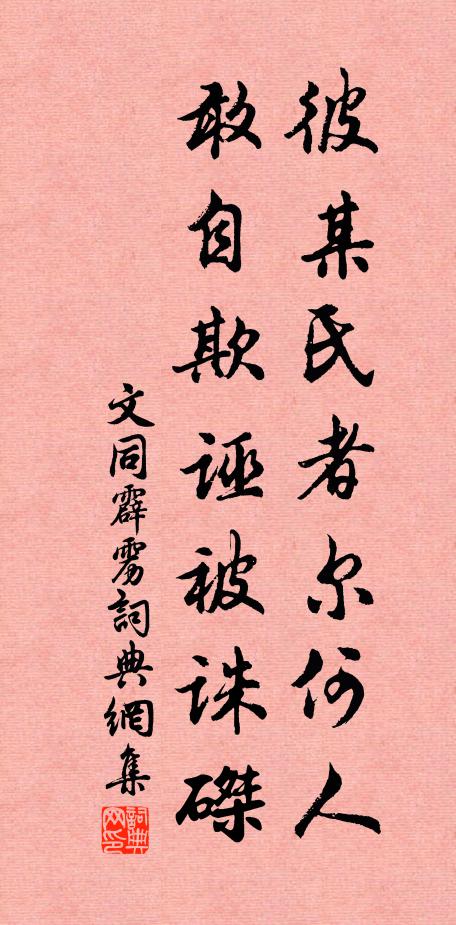 彼某氏者尔何人
敢自欺诬被诛磔
文同霹雳詞典網集
詞典网印